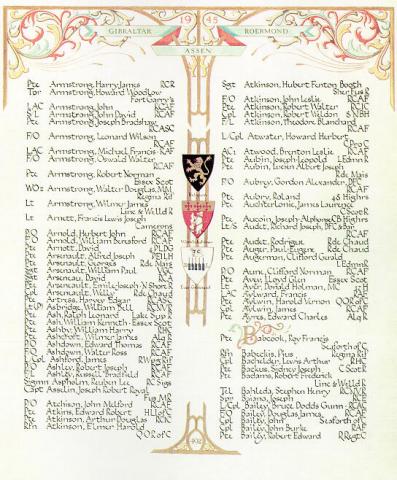 19 45
GIBRALTAR
ROERMOND
ASSEN
Pte Armstrong, Harry James RCR
Tpr Armstrong, Howard Woodlow
Fort Garry's
LAC Armstrong, John RCAF
S/L Armstrong, John David RCAF
Pte Armstrong, Joseph Bradshaw
RCASC
F/O Armstrong, Leonard Wilson
RCAF
LAC Armstrong, Michael Francis RAF
F/O Armstrong, Oswald Walter
RCAF
Pte Armstrong, Robert Norman
Essex Scot
WO2 Armstrong, Walter Douglas, MM
Regina Rif
Lt Armstrong, Wilmer James
Linc & Welld R
Lt Arnett, Francis Lewis Joseph
Camerons
P/O Arnold, Herbert John RCAF
P/O Arnold, William Beresford RCAF
Pte Arsenault, David 4 PLDG
Pte Arsenault, Alfred Joseph PEILH
Pte Arsenault, Georges Rde Mais
Sgt Arsenault, William Paul
Gnr Arsenault, William RCA
Pte Arseneault, Emily-Joseph N Short R
Pte Arseneault, Willie Rde Chaud
Pte Artress, Harvey Edgar
Pte Ash, Ralph Leonard Lake Sup R
Pte Ash, William Kenneth Essex Scot
Pte Ashby, William Harry RHC
Pte Ashcroft, Wilmer James Alq R
P/O Ashdown, Edward Thomas RCAF
F/O Ashdown, Walter Ross RCAF
Cpl Ashford, James RWpg Rif
P/O Ashley, Robert Joseph RCAF
P/O Ashley, Russell Bradfield RCAF
Sigmn Aspholm, Reuben Leo RC Sigs
Capt Asselin, Joseph Robert Royal
Fus MR
P/O Atchison, John Melford RCAF
Pte Atkins, Edward Robert HLI of C
Pte Atkinson, Arthur Douglas ROC
Rfn Atkinson, Elmer Harold
QOR of C
Sgt Atkinson, Hubert Fenton Booth
Sher Fus R
F/O Atkinson, John Leslie RCAF
Pte Atkinson, Robert Walter RCIC
Cpl Atkinson, Robert Weldon 8 NBH
F/L Atkinson, Theodore Blanchard
RCAF
L/Cpl Atwater, Howard Herbert
C Pro C
AC1 Atwood, Brenton Leslie RCAF
Pte Aubin, Joseph-Leopold L Edmn R
Pte Aubin, Lucien Albert Joseph
Rde Mais
F/O Aubrey, Gordon Alexander, DFC
RCAF
Pte Aubrey, Roland 48 Highrs
Pte Auchterlonie, James Laurence
C Scot R
Pte Aucoin, Joseph-Alphonse CB Highrs
Lt/S Audet, Richard Joseph, DFC & Bar
RCAF
Pte Audet, Rodrigue Rde Chaud
Pte Auger, Paul Eugene Rde Chaud
Pte Augerman, Clifford Gerald
L Edmn R
P/O Aune, Clifford Norman RCAF
Pte Avey, Lloyd Glen Essex Scot
Lt Ayer, Donald Holman, MC 8 CH
LAC Aylward, Francis RAF
Pte Aylwin, Harold Vernon QOR of C
Sgt Aylwin, James RCAF
Pte Ayres, Edward Charles Alq R
B
Pte Babcock, Roy Francis
Seaforth of C
Rfn Babechis, Pius Regina Rif
Cpl Bachelder, Lewis Arthur RHC
Pte Backus, Sidney Joseph C Scot R
Pte Badams, Robert Frederick
Linc & Welld R
Tel Bahleda, Stephen Henry RCNVR
Spr Baiana, Joseph RCE
L/Cpl Bailey, Bruce Dodds Gunn RCAC
F/O Bailey, Douglas James RCAF
Cpl Bailey, John Seaforth of C
F/O Bailey, John Burke RAF
Pte Bailey, Robert Edward R Regt C
492